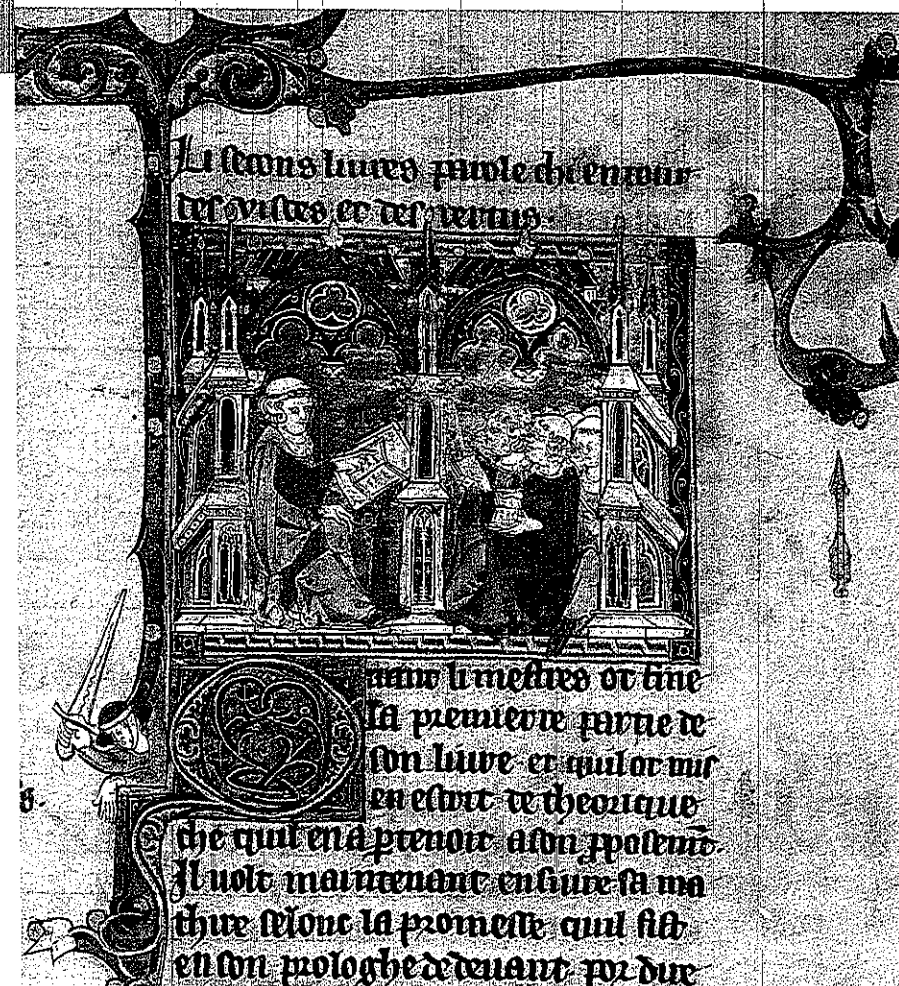 Li secons liures parole chi entour
des visces et des uertus.
Quant li mestres ot fine
la premiere partie de
son liure et quil ot mis
en escrit de theorique
che quil en aptenoit a son pposemt.
Il uolt maintenant ensiure sa ma
thire selonc la promesse quil fist
en son prologhe dedeuant por dire